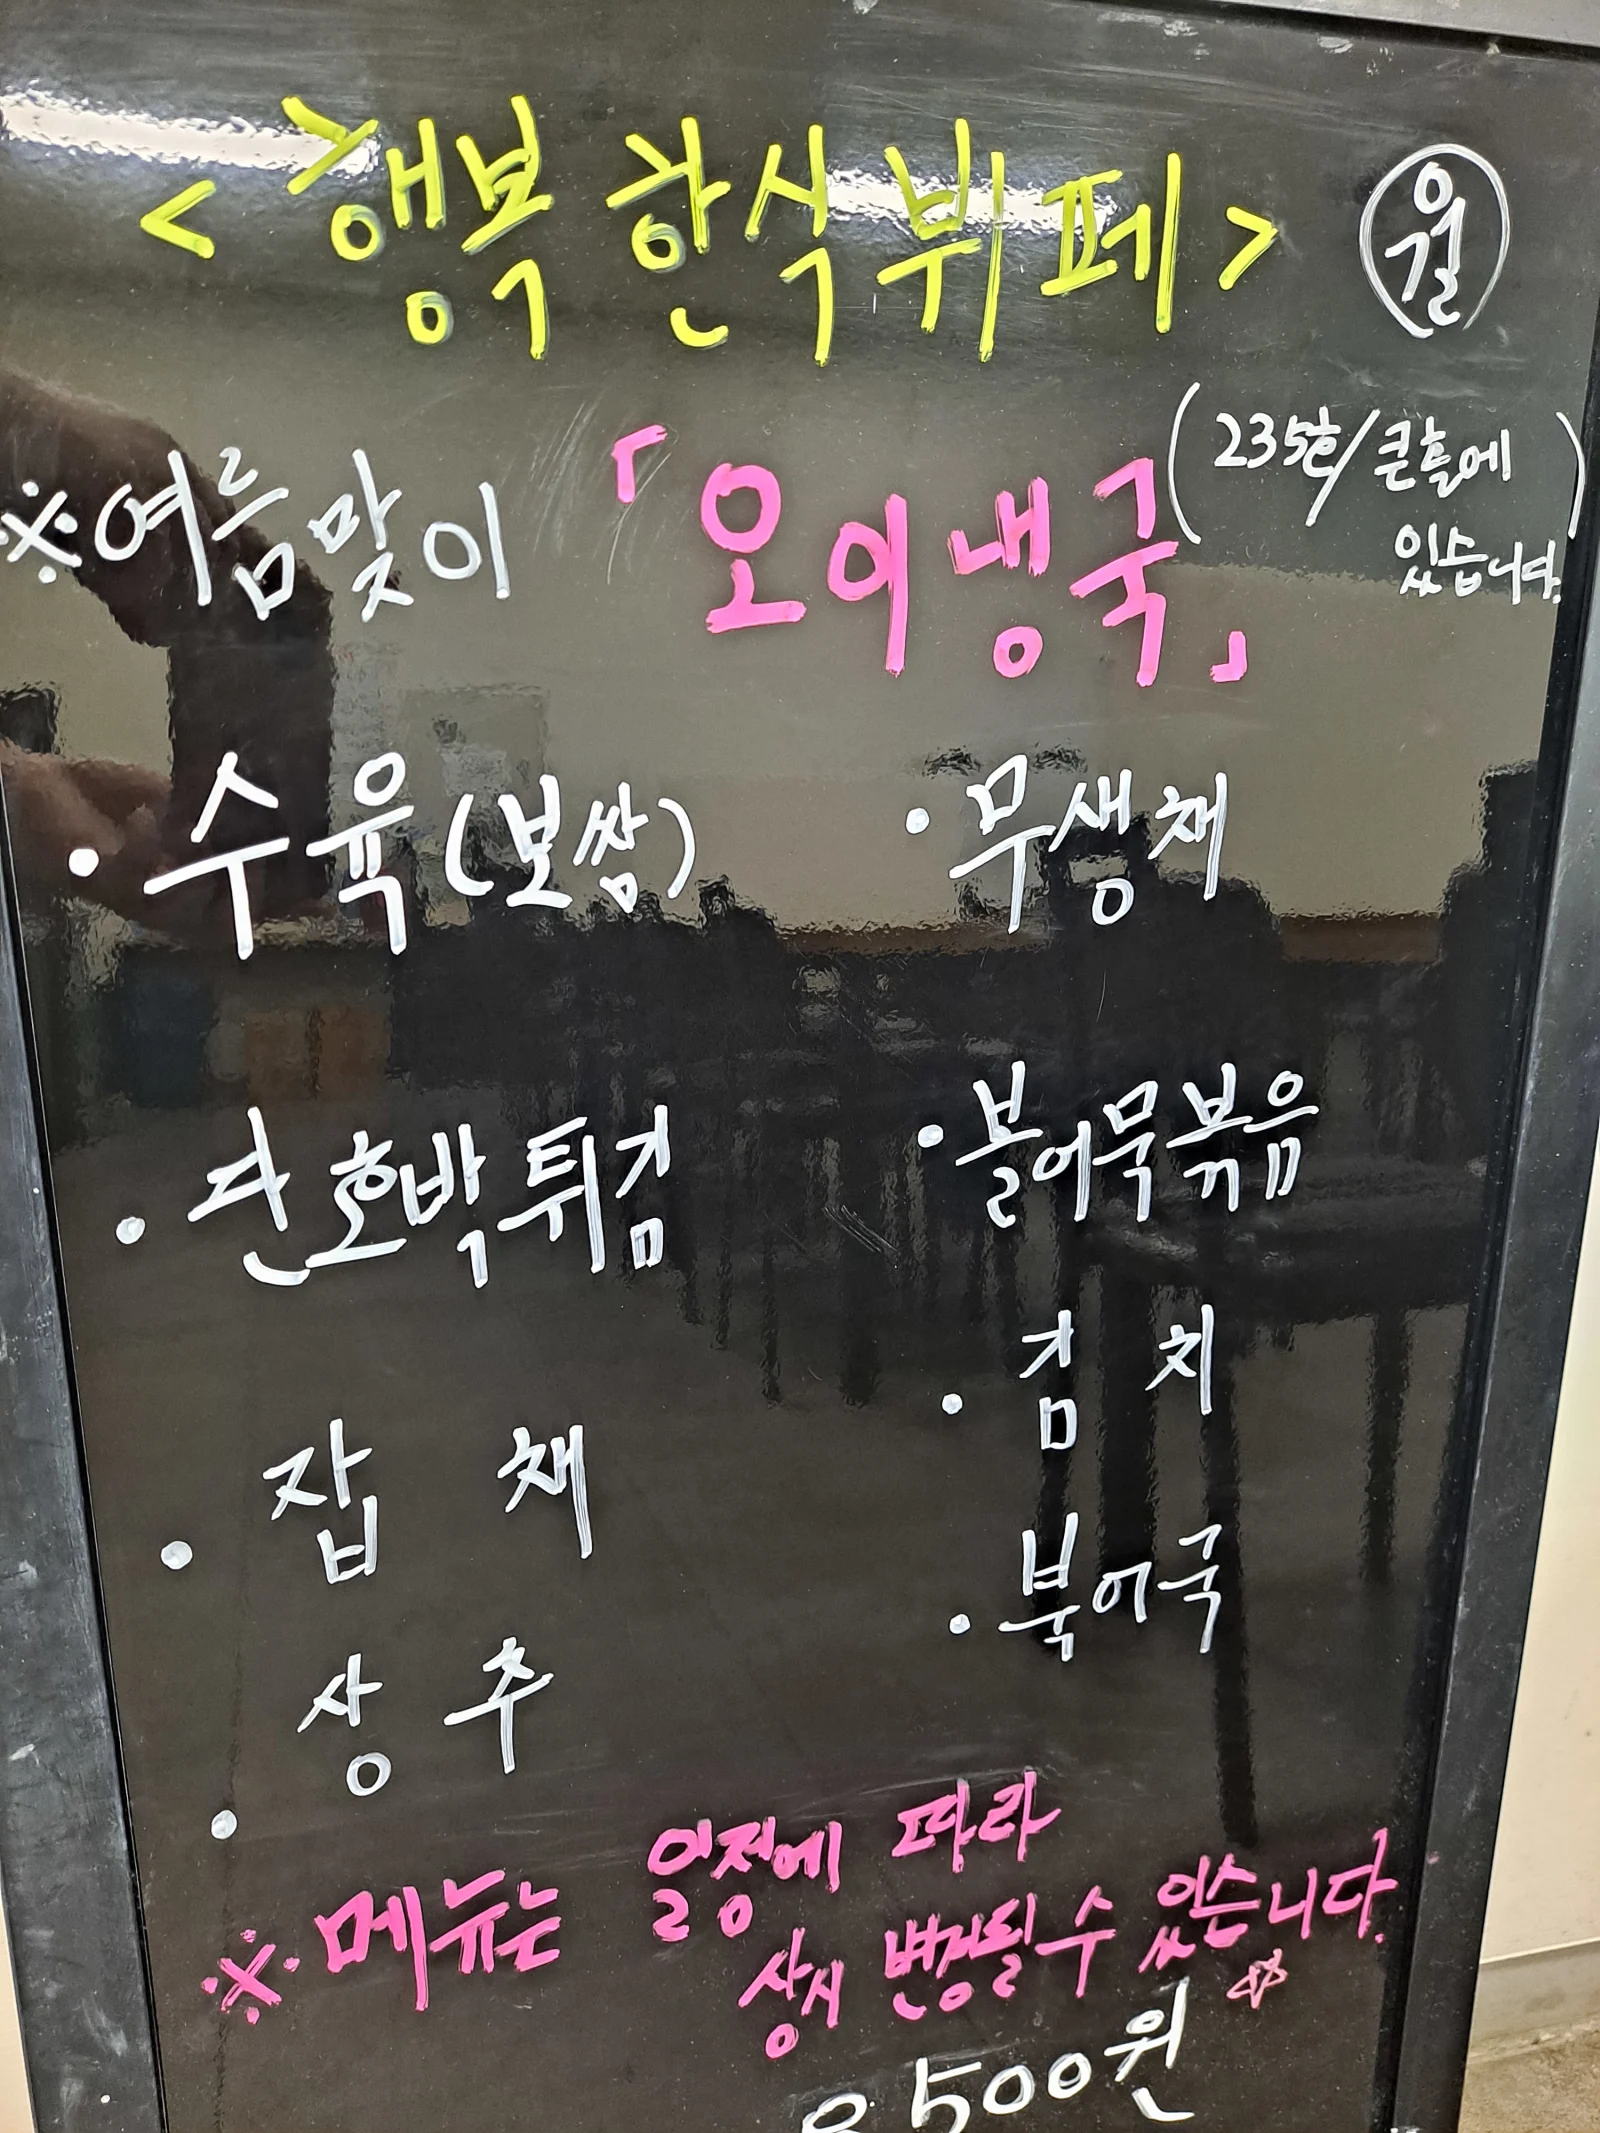 <행복 한식 뷔페> 월
※여름맞이 「오이냉국」 (235호/큰홀에
있습니다.)
• 수육(보쌈)
• 무생채
• 단호박튀김
• 불어묵볶음
• 잡 채
• 김 치
• 상 추
• 북어국
※메뉴는 일정에 따라
상시 변경될 수 있습니다.☆
8500원